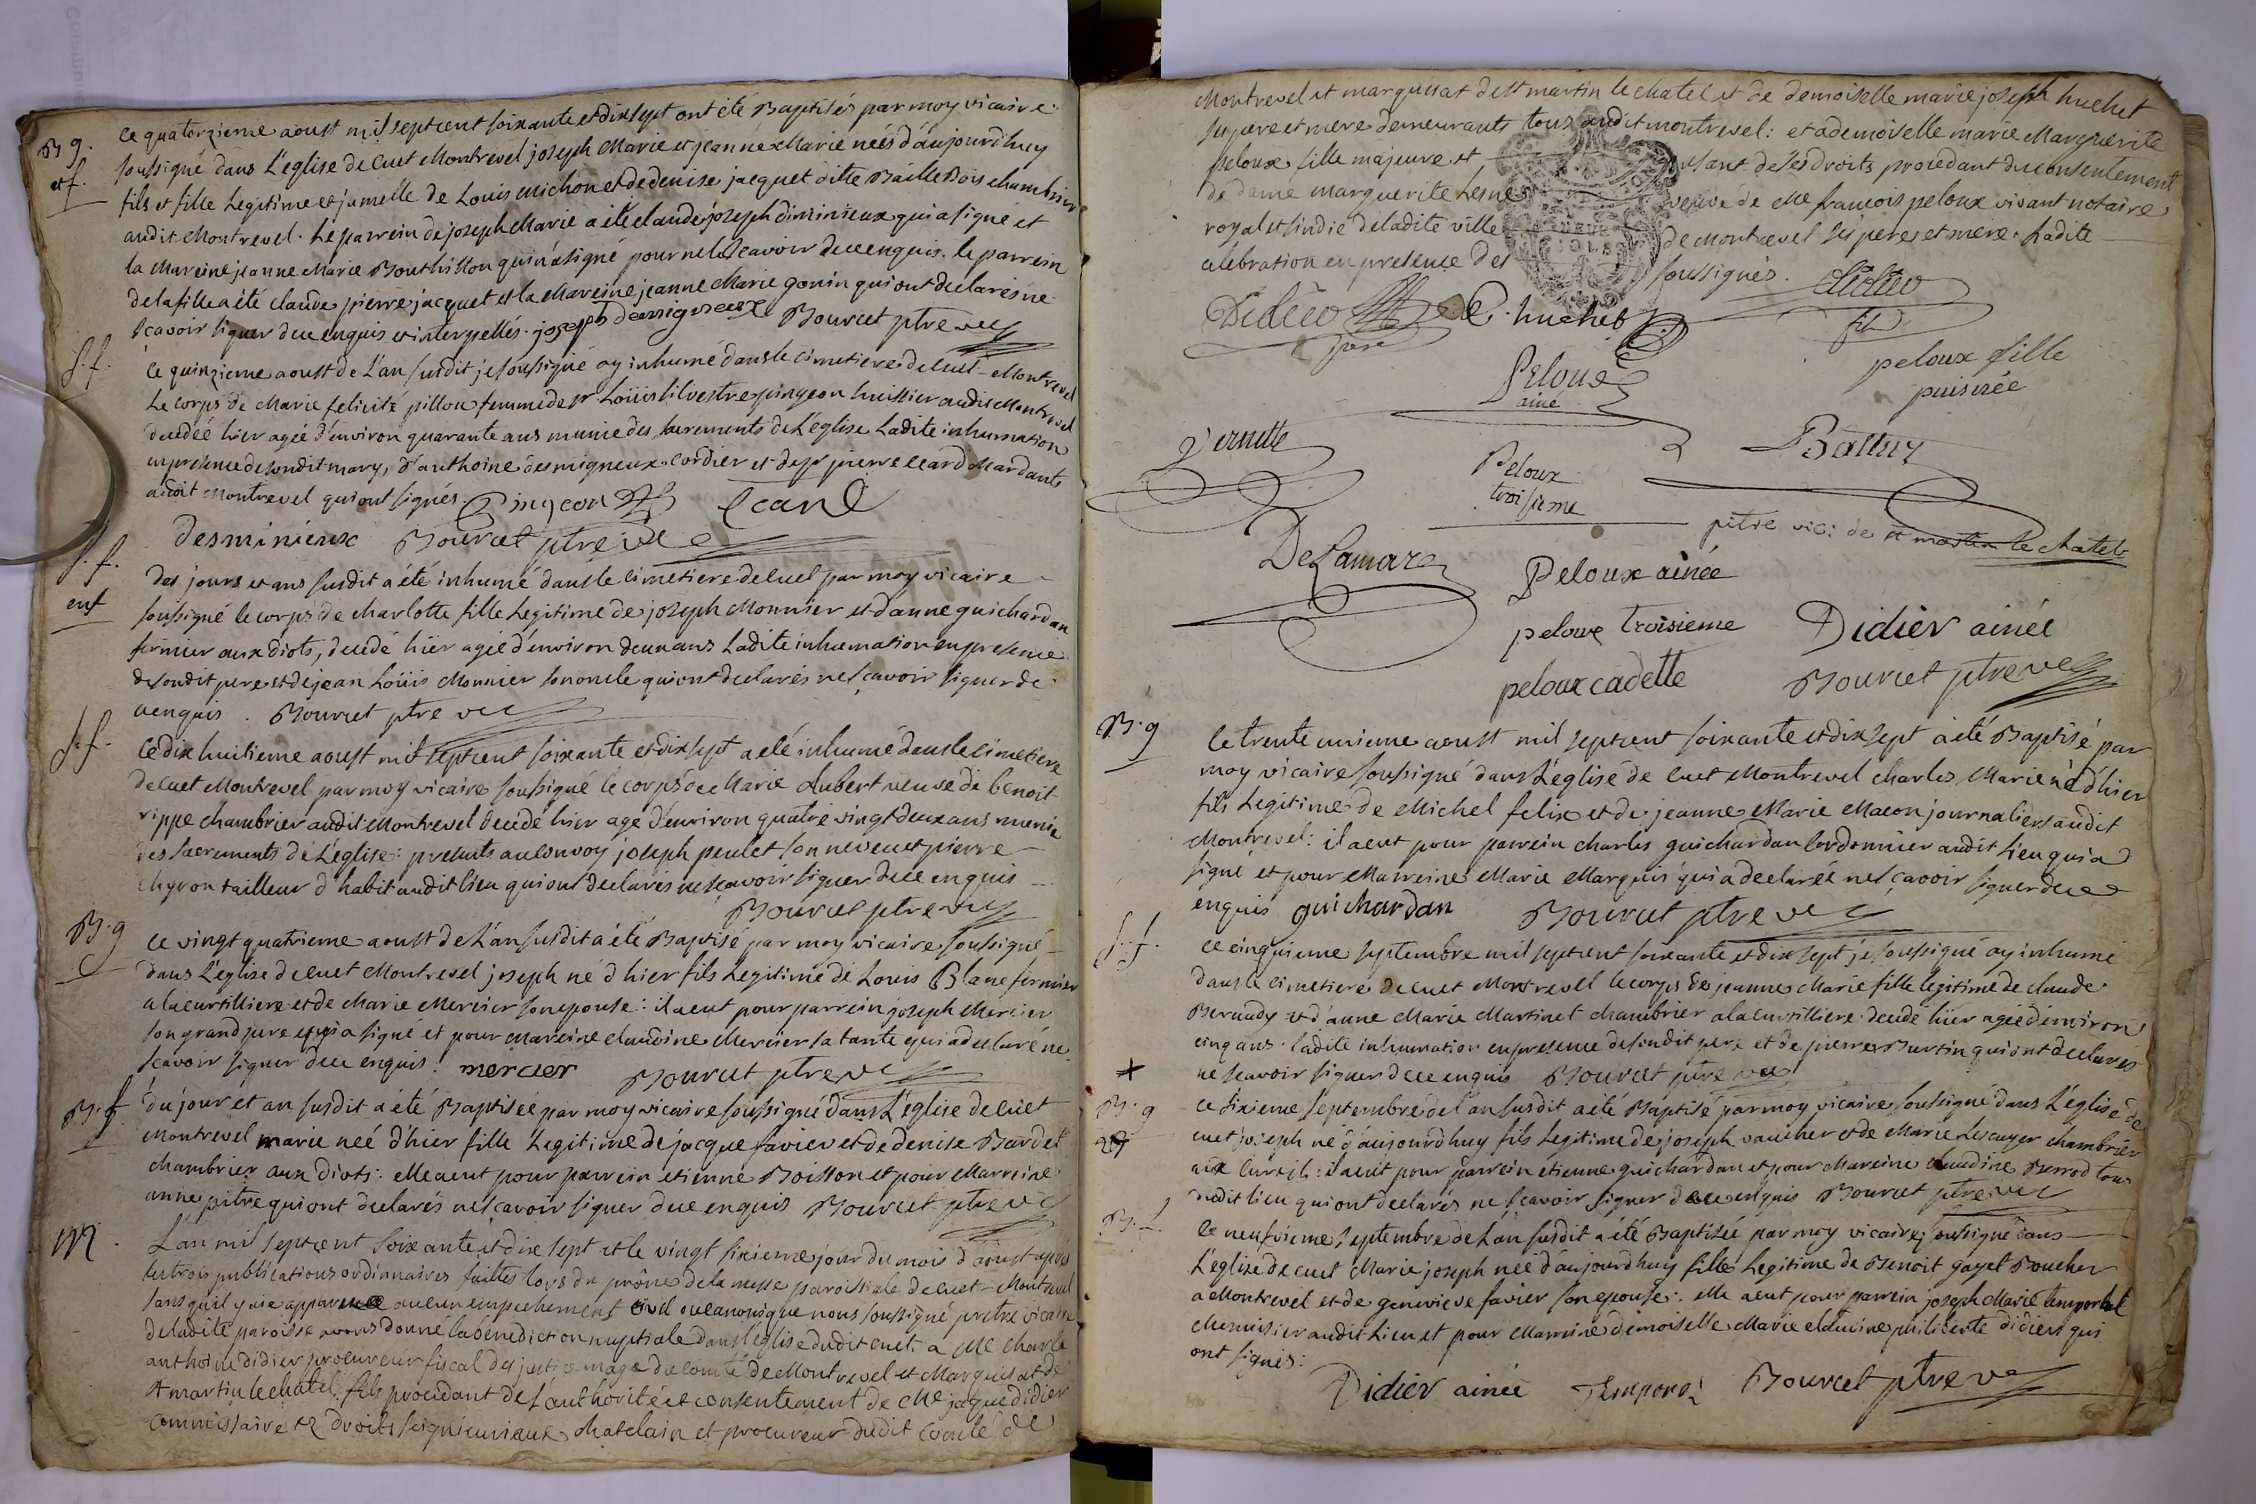 B g.
et f.
Ce quatorzieme aoust mil sept cent soixante et dix sept ont été Baptisés par moy vicaire
soussigné dans L'eglise de Cuet Montrevel joseph Marie et jeanne Marie neés d'aujourd'huy
fils et fille Legitime et jumelle de Louis michon et de denise jacquet ditte Baille Bois chambrier
audit Montrevel. Le parrein de joseph Marie a été claude joseph diminieux qui a signé et
la Mareine jeanne Marie Bouthillon qui n'a signé pour ne le scavoir de ce enquis. le parrein
de la fille a été claude pierre jacquet et la Mareine jeanne Marie gonin qui ont declarés ne
scavoir signer de ce enquis et interpellés. joseph desmigneux Bourcet ptre vic
S. f.
Ce quinzieme aoust de L'an susdit je soussigné ay inhumé dans le cimetiere de Cuet Montrevel
Le corps de Marie felicité pillon femme de sr Loüis silvestre pingeon huissier audit Montrevel
decedée hier ageé d'environ quarante ans munie des sacrements de L'église Ladite inhumation
en presence de sondit mary, d'anthoine desmigneux cordier et de sr pierre ecard Mardant
audit Montrevel qui ont signés. Pingeon Ecard
Desminieux Bourcet ptre vic
S. f.
enf
Des jours et ans susdit a été inhumé dans le cimetiere de Cuet par moy vicaire
soussigné le corps de Charlotte fille Legitime de joseph Monnier et d'anne guichardan
fermier aux diots, decedé hier ageé d'environ deux ans Ladite inhumation en presence
de sondit pere et de jean Loüis Monnier son oncle qui ont declarés ne sçavoir signer de
ce enquis. Bourcet ptre vic
S. f.
Ce dix huitieme aoust mil sept cent soixante et dix sept a été inhumé dans le cimetiere
de Cuet Montrevel par moy vicaire soussigné le corps de Marie Aubert veuve de benoit
rippe chambrier audit Montrevel decedé hier agé d'environ quatre vingt deux ans munie
des sacrements de L'église: presents au convoy joseph peulet son neveu et pierre
chyron tailleur d'habit audit lieu qui ont declarés ne sçavoir signer de ce enquis
Bourcet ptre vic
B. g
Ce vingt quatrieme aoust de L'an susdit a été Baptisé par moy vicaire soussigné
dans L'église de Cuet Montrevel joseph né d'hier fils Legitime de Louis Blanc fermier
a la curtilliere et de Marie Mercier son epouse: il a eut pour parrein joseph Mercier
son grand pere qui a signé et pour Mareine claudine Mercier sa tante qui a declaré ne
scavoir signer de ce enquis. mercier Bourcet ptre vic
B. f.
du jour et an susdit a été Baptiseé par moy vicaire soussigné dans L'église de Cuet
Montrevel marie neé d'hier fille Legitime de jacque favier et de denise Bardet
chambrier aux diots: elle a eut pour parrein etienne Boisson et pour Marreine
anne pitre qui ont declarés ne sçavoir signer de ce enquis Bourcet ptre vic
M.
L'an mil sept cent soixante et dix sept et le vingt sixieme jour du mois d'aoust après
les trois publications ordinaires faittes lors du prône de la messe paroissiale de Cuet Montrevel
sans qu'il y aie apparence aucun empechement civil ou canonique nous soussigné pretre vicaire
de ladite paroisse avons donné la benediction nuptiale dans l'eglise dudit Cuet: a Me Charle
anthoine didier procureur fiscal des justice mage du comté de Montrevel et Marquisat de
st martin le chatel, fils procedant de l'authorité et consentement de Me jaque didier
commissaire ez droits seigneuriaux chatelain et procureur dudit Comté de
Montrevel et marquisat de st martin le chatel et de demoiselle marie joseph huchet
ses pere et mere demeurants tous audit montrevel: et a demoiselle marie Marguerite
peloux fille majeure et usant de ses droits procedant du consentement
de dame marguerite Lesne veuve de Me françois peloux vivant notaire
royal et sindic de ladite ville de Montrevel ses pere et mere. Ladite
celebration en presence des soussignés. Didier
Didier C. huchet fils
pere
Peloux
ainé
peloux fille
puisnée
Vernette
Peloux
troisieme
Battur
ptre vic: de st martin le chatel
Delamare
Peloux ainée
peloux troisieme
Didier ainée
peloux cadette
Bourcet ptre vic
B. g
Ce trente unieme aoust mil sept cent soixante et dix sept a été Baptisé par
moy vicaire soussigné dans L'église de Cuet Montrevel charles Marie né d'hier
fils Legitime de Michel felix et de jeanne Marie Macon journaliers audit
Montrevel: il a eut pour parrein charles guichardan cordonnier audit lieu qui a
signé et pour Marreine Marie Marquis qui a declarée ne sçavoir signer de ce
enquis guichardan Bourcet ptre vic
S. f.
Ce cinquieme septembre mil sept cent soixante et dix sept je soussigné ay inhumé
dans le cimetiere de Cuet Montrevel le corps de jeanne Marie fille legitime de claude
Bernudy et d'anne Marie Martinet chambrier a la curtilliere decedé hier ageé d'environ
cinq ans. ladite inhumation en presence de sondit pere et de pierre Burtin qui ont declarés
ne scavoir signer de ce enquis Bourcet ptre vic
B. g
Ce sixieme septembre de l'an susdit a été Baptisé par moy vicaire soussigné dans L'église de
Cuet joseph né d'aujourd'huy fils Legitime de joseph vaucher et de Marie Lescuyer chambrier
aux curtils: il a eut pour parrein etienne guichardan et pour Mareine claudine Perrod tous
dudit lieu qui ont declarés ne scavoir signer de ce enquis Bourcet ptre vic
B. f.
Ce neufvieme septembre de L'an susdit a été Baptiséé par moy vicaire soussigné dans
L'église de cuet Marie joseph neé d'aujourd'huy fille Legitime de Benoit gayet Boucher
a Montrevel et de genevieve favier son epouse: elle a eut pour parrein joseph Marie temporal
Menuisier audit lieu et pour Marreine demoiselle Marie claudine philiberte didier qui
ont signés:
Didier ainée Temporal Bourcet ptre vic